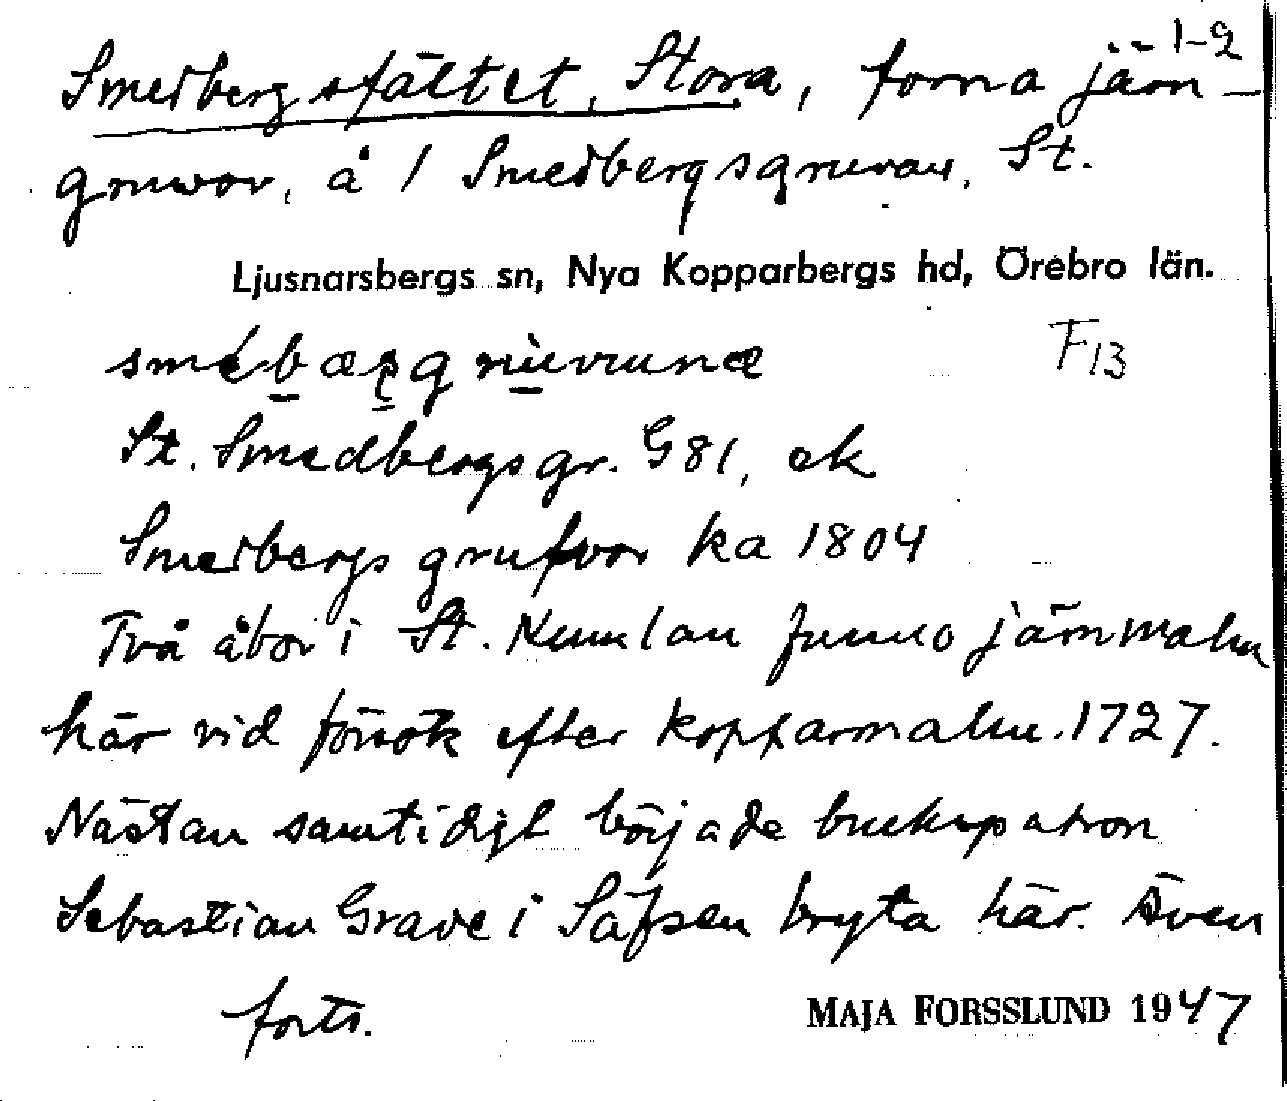 1-2
Smedbergsfältet, Stora, forna järn-
gruvor, å 1 Smedbergsgruvan, St.
Ljusnarsbergs sn, Nya Kopparbergs hd, Örebro län.
F13
St. Smedbergsgr. G81, ek
Smedbergs grufvor ka 1804
Två åbor i St. Kumlan funno järnmalm
här vid försök efter kopparmalm 1727.
Nästan samtidigt började brukspatron
Sebastian Grave i Säfsen bryta här. Även
forts.
MAJA FORSSLUND 1947